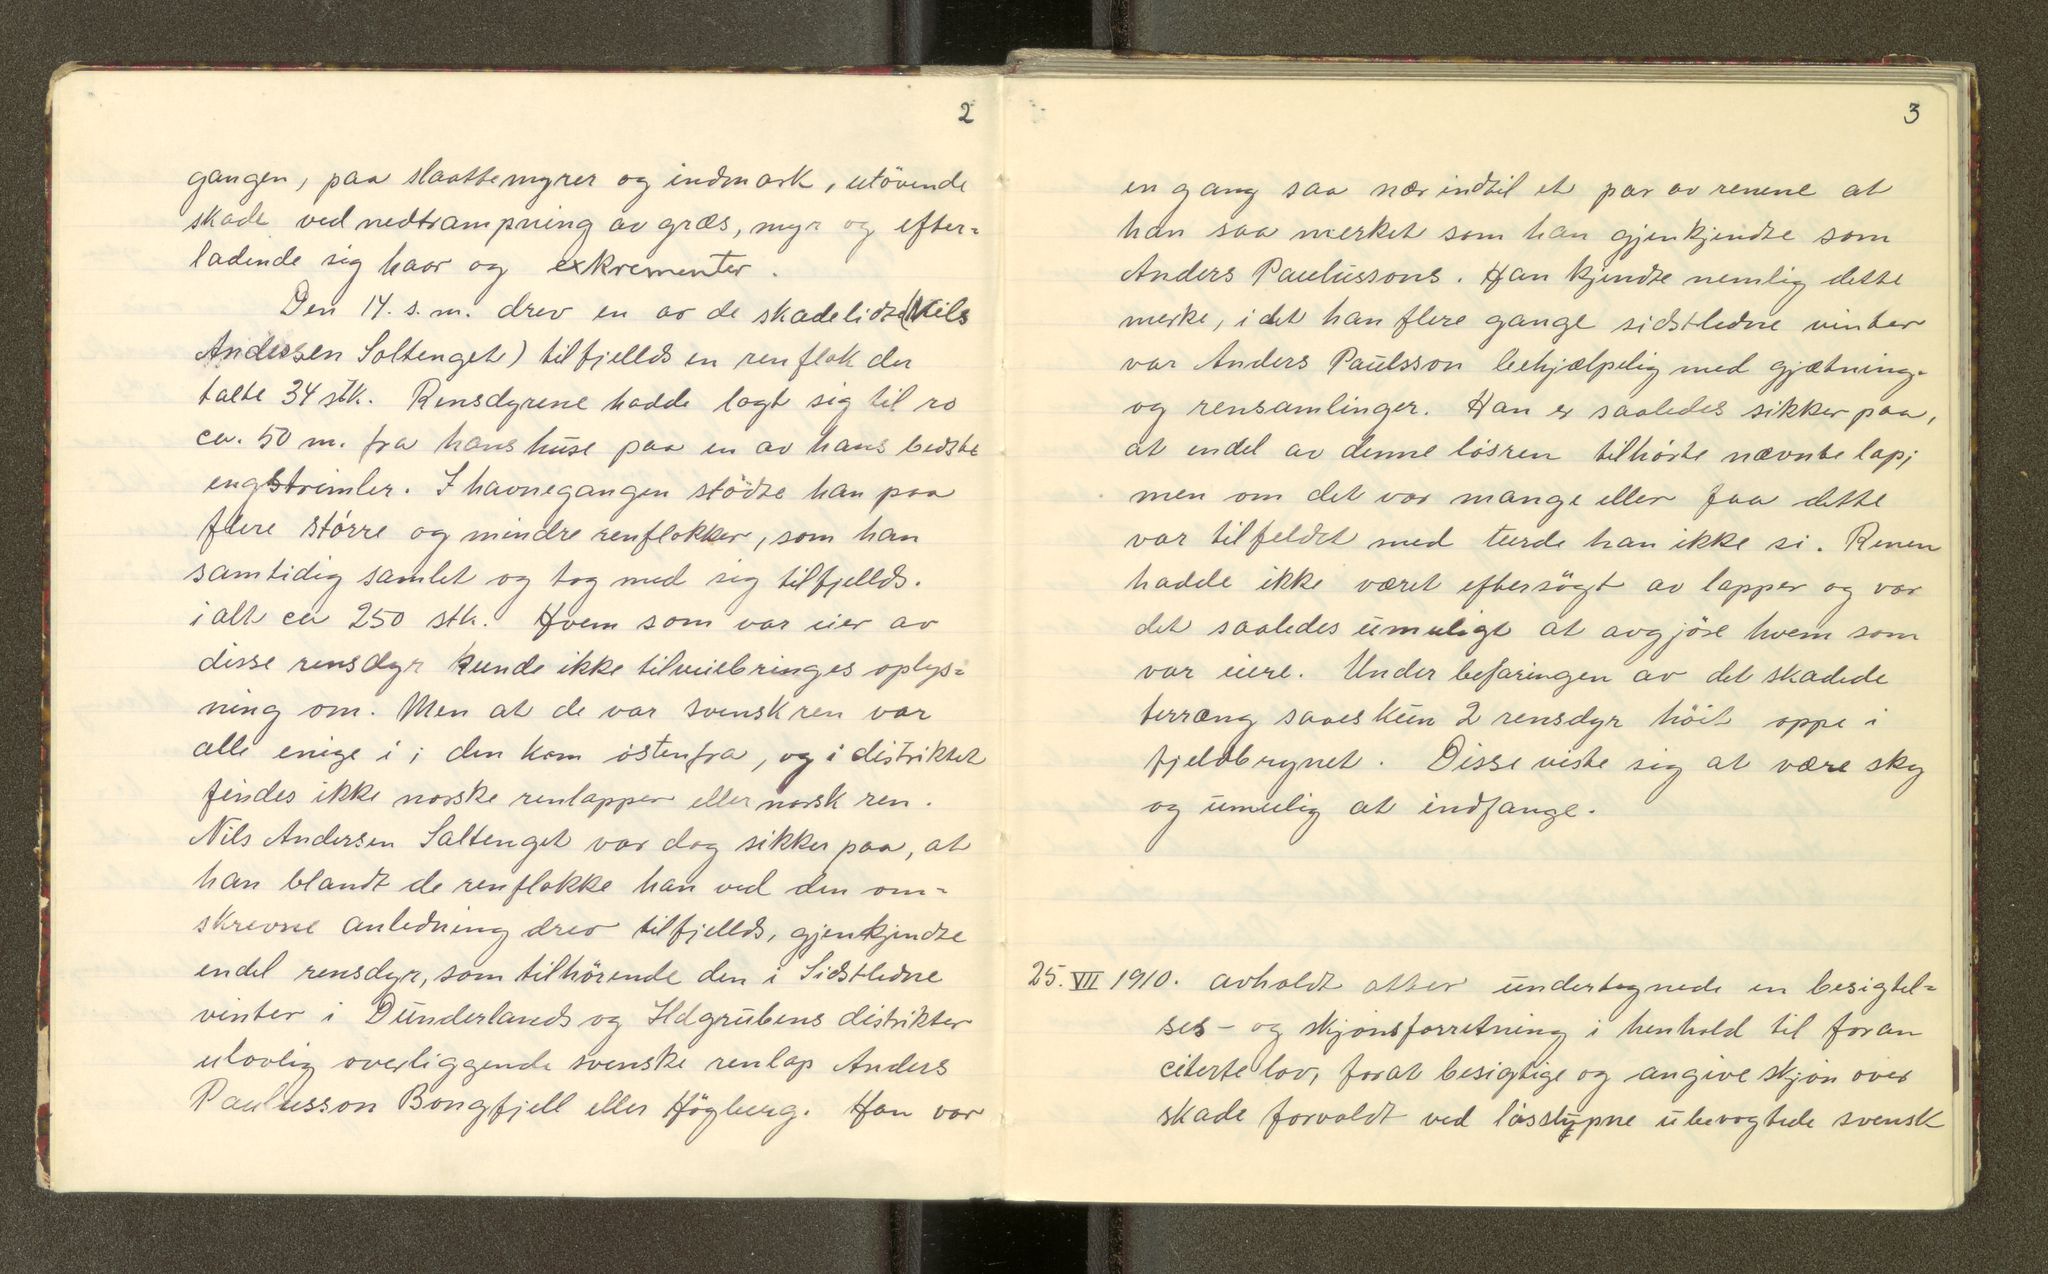 2
gangen, paa slaattemyrer og indmark, utövende
skade ved nedtrampning av græs, myr og efter=
ladende sig haar og exkrementer.
Den 14. s.m. drev en av de skadelidte (Nils
Andersen Saltenget) tilfjells en renflok der
talte 34 stk. Rensdyrene hadde lagt sig til ro
ca. 50 m. fra hans huse paa en av hans bedste
engstrimler. I havnegangen stödte han paa
flere större og mindre renflokker, som han
samtidig samlet og tog med sig tilfjells.
ialt ca 250 stk. Hvem som var eier av
disse rensdyr kunde ikke tilveiebringes oplys=
ning om. Men at de var svensk ren var
alle enige i; den kom östenfra, og i distriktet
findes ikke norske renlapper eller norsk ren.
Nils Andersen Saltenget var dog sikker paa, at
han blandt de renflokke han ved den om=
skrevne anledning drev tilfjells, gjenkjendte
endel rensdyr, som tilhörende den i Sidstledne
vinter i Dunderlands og Ildgrubens distrikter
ulovlig overliggende svenske renlap Anders
Paulusson Bongfjell eller Högberg. Han var
3
en gang saa nær indtil et par av renene at
han saa merket som han gjenkjendte som
Anders Paulussons. Han kjendte nemlig dette
merke, idet han flere gange sidstledne vinter
var Anders Paulsson behjælpelig med gjætning-
og rensamlinger. Han er saaledes sikker paa,
at endel av denne lösren tilhörte nævnte lap;
men om det var mange eller faa dette
var tilfeldet med turde han ikke si. Renen
hadde ikke været eftersögt av lapper og var
det saaledes umuligt at avgjöre hvem som
var eiere. Under befaringen av det skadede
terræng saaes kun 2 rensdyr höit oppe i
fjeldbrynet. Disse viste sig at være sky
og umulig at indfange.
25. VII 1910. avholdt atter undertegnede en besigtel=
ses- og skjönsforretning i henhold til foran
citerte lov, forat besigtige og angive skjön over
skade forvoldt ved lösslupne ubevogtede svensk